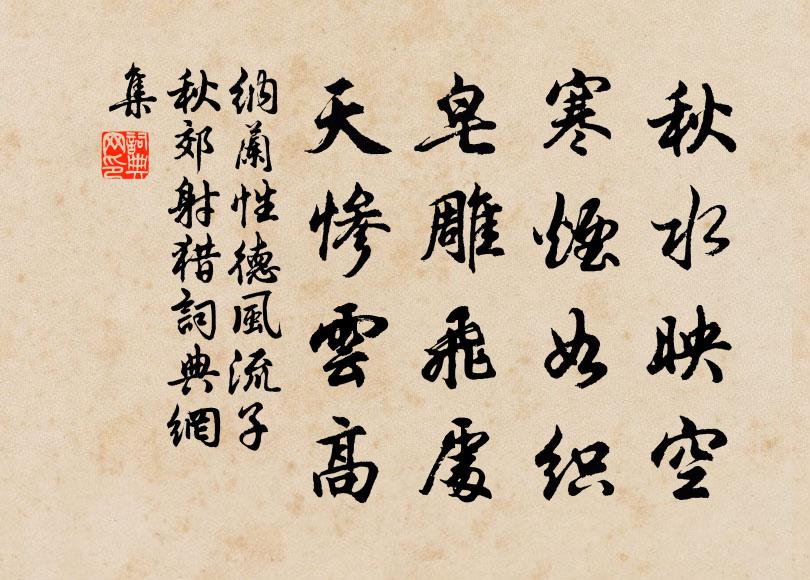 秋水映空
寒煙如织
皂雕飛處
天慘雲高
納蘭性德風流子
秋郊射猎詞典網
集
詞典
网印